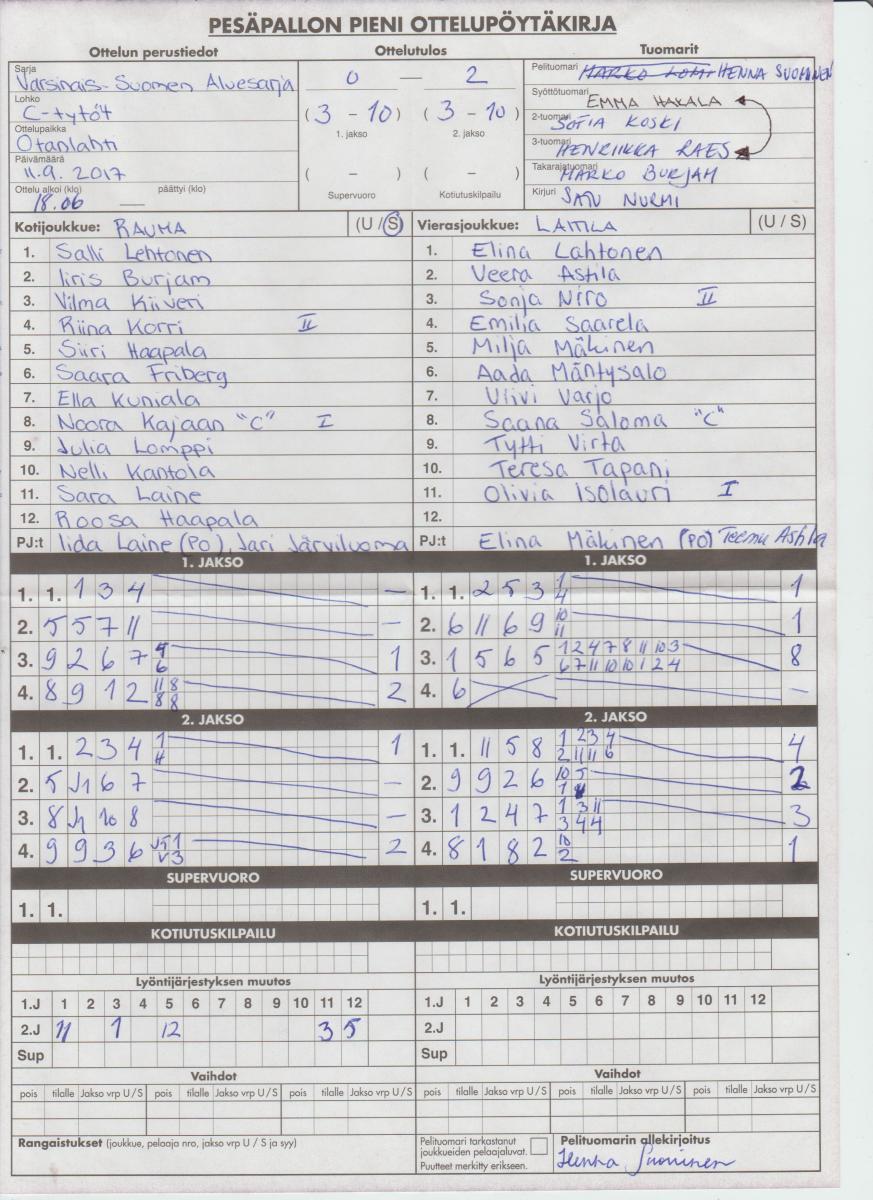 PESÄPALLON PIENI OTTELUPÖYTÄKIRJA
Ottelun perustiedot Ottelutulos Tuomarit
Sarja
Varsinais-Suomen Aluesarja
Lohko
C-tytöt
Ottelupaikka
Otanlahti
Päivämäärä
11.9.2017
Ottelu alkoi (klo) päättyi (klo)
18.06 —
0 — 2
(3 - 10) (3 - 10)
1. jakso 2. jakso
( - ) ( - )
Supervuoro Kotiutuskilpailu
Pelituomari HENNA SUOMINEN
Syöttötuomari EMMA HAKALA
2-tuomari SOFIA KOSKI
3-tuomari HENRIIKKA RAES
Takarajatuomari MARKO BURJAM
Kirjuri SATU NURMI
Kotijoukkue: RAUMA (U / S) Vierasjoukkue: LAITILA (U / S)
1. Salli Lehtonen 1. Elina Lahtonen
2. Iiris Burjam 2. Veera Astila
3. Vilma Kiiveri 3. Sonja Niro II
4. Riina Korri II 4. Emilia Saarela
5. Siiri Haapala 5. Milja Mäkinen
6. Saara Friberg 6. Aada Mäntysalo
7. Ella Kuniala 7. Ulivi Varjo
8. Noora Kajaan "C" I 8. Saana Saloma "C"
9. Julia Lomppi 9. Tytti Virta
10. Nelli Kantola 10. Teresa Tapani
11. Sara Laine 11. Olivia Isolauri I
12. Roosa Haapala 12.
PJ:t Iida Laine (PO), Jari Järviluoma PJ:t Elina Mäkinen (PO) Teemu Astila
1. JAKSO 1. JAKSO
1. 1. 1 3 4 — 1. 1. 2 5 3 1 4 1
2. 5 5 7 11 — 2. 6 11 6 9 10 11 1
3. 9 2 6 7 4 6 1 3. 1 5 6 5 1 2 4 7 8 11 10 3 6 7 11 10 10 1 2 4 8
4. 8 9 1 2 11 8 8 8 2 4. 6 —
2. JAKSO 2. JAKSO
1. 1. 2 3 4 1 4 1 1. 1. 11 5 8 1 2 3 4 2 11 11 6 4
2. 5 J1 6 7 — 2. 9 9 2 6 10 5 1 2
3. 8 J1 10 8 — 3. 1 2 4 7 1 3 11 3 4 4 3
4. 9 9 3 6 J5 1 V 3 2 4. 8 1 8 2 10 2 1
SUPERVUORO SUPERVUORO
1. 1. 1. 1.
KOTIUTUSKILPAILU KOTIUTUSKILPAILU
Lyöntijärjestyksen muutos Lyöntijärjestyksen muutos
1.J 1 2 3 4 5 6 7 8 9 10 11 12 1.J 1 2 3 4 5 6 7 8 9 10 11 12
2.J 11 1 12 3 5 2.J
Sup Sup
Vaihdot Vaihdot
pois tilalle Jakso vrp U / S pois tilalle Jakso vrp U / S pois tilalle Jakso vrp U / S pois tilalle Jakso vrp U / S pois tilalle Jakso vrp U / S pois tilalle Jakso vrp U/S
Rangaistukset (joukkue, pelaaja nro, jakso vrp U / S ja syy)
Pelituomari tarkastanut
joukkueiden pelaajaluvat.
Puutteet merkitty erikseen.
Pelituomarin allekirjoitus
Henna Suominen